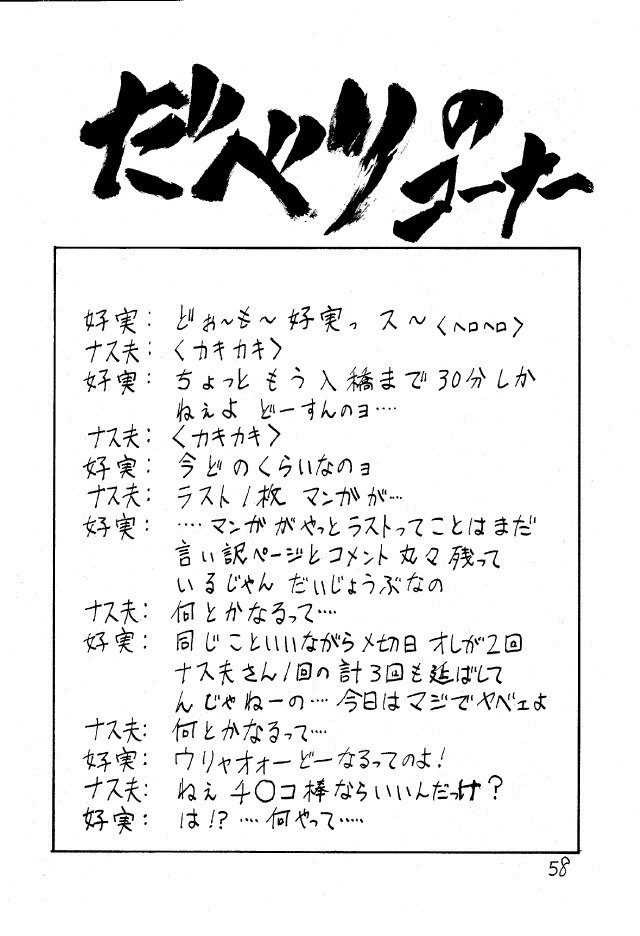 だべりのコーナー
好実: どぉ〜も〜好実っ ス〜〈ヘロヘロ〉
ナス夫:〈カキカキ〉
好実: ちょっと もう 入稿まで 30分しか
ねぇよ どーすんのョ‥‥
ナス夫:〈カキカキ〉
好実: 今どのくらいなのョ
ナス夫: ラスト1枚 マンガが‥‥
好実: ‥‥マンガがやっとラストってことはまだ
言い訳ページとコメント丸々残って
いるじゃん だいじょうぶなの
ナス夫: 何とかなるって‥‥
好実: 同じこといいながら〆切日 オレが2回
ナス夫さん1回の計3回も延ばして
んじゃねーの‥‥今日はマジでヤベェよ
ナス夫: 何とかなるって‥‥
好実: ウリャオォーどーなるってのよ!
ナス夫: ねぇ チ〇コ棒ならいいんだっけ?
好実: は!? ‥‥何やって‥‥‥
58